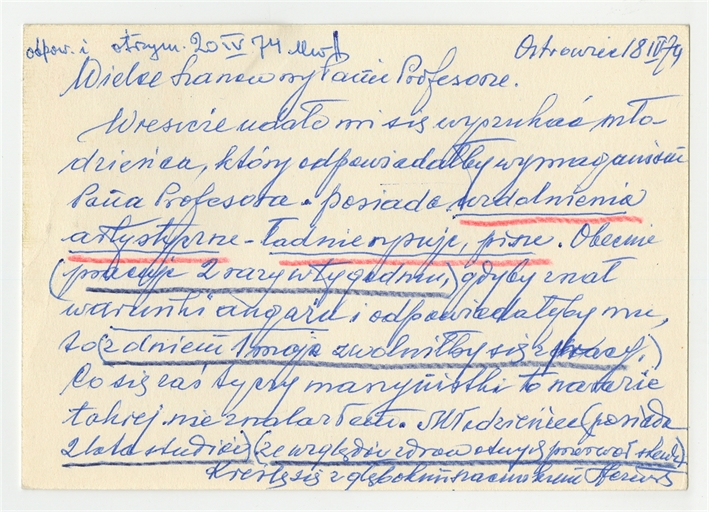 odpow. i otrzym. 20 IV 74 Ostrowiec 18 IV 74
Wielce Szanowny Panie Profesorze.
Wreszcie udało mi się wyszukać mło-
dzieńca, który odpowiadałby wymaganiom
Pana Profesora. posiada uzdolnienia
artystyczne - ładnie rysuje, pisze. Obecnie
(pracuje 2 razy w tygodniu,) gdyby znał
warunki angażu i odpowiadałyby mu,
to (z dniem 1 maja zwolniłby się z pracy.)
Co się zaś tyczy maszynistki to na razie
takiej nie znalazłem. Młodzieniec (posiada
2 lata studiów) (ze względów zdrowotnych przerwał studia)
Kreślę się z głębokim szacunkiem